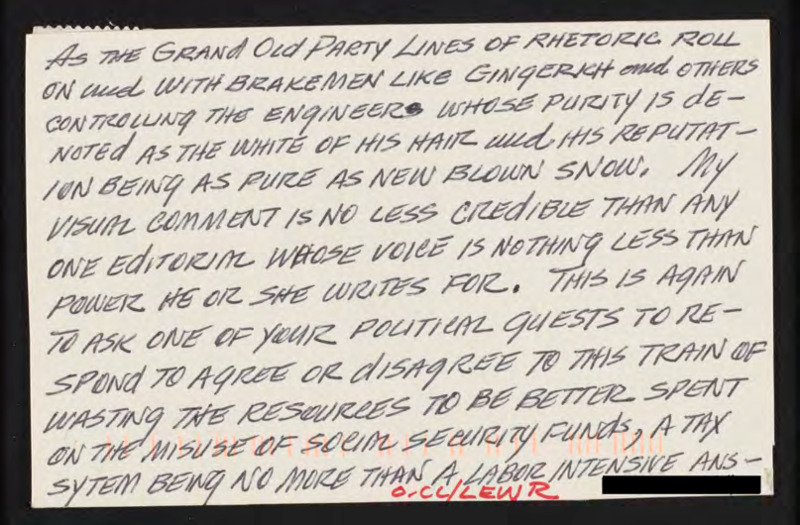 AS THE GRAND OLD PARTY LINES OF RHETORIC ROLL
ON and WITH BRAKEMEN LIKE GINGERICH and OTHERS
CONTROLLING THE ENGINEERS WHOSE PURITY IS DE-
NOTED AS THE WHITE OF HIS HAIR and HIS REPUTAT-
ION BEING AS PURE AS NEW BLOWN SNOW. MY
VISUAL COMMENT IS NO LESS CREDIBLE THAN ANY
ONE EDITORIAL WHOSE VOICE IS NOTHING LESS THAN
POWER HE OR SHE WRITES FOR. THIS IS AGAIN
TO ASK ONE OF YOUR POLITICAL GUESTS TO RE-
SPOND TO AGREE OR DISAGREE TO THIS TRAIN OF
WASTING THE RESOURCES TO BE BETTER SPENT
ON THE MISUSE OF SOCIAL SECURITY FUNDS, A TAX
SYTEM BEING NO MORE THAN A LABOR INTENSIVE ANS-
O-CC/LEWR